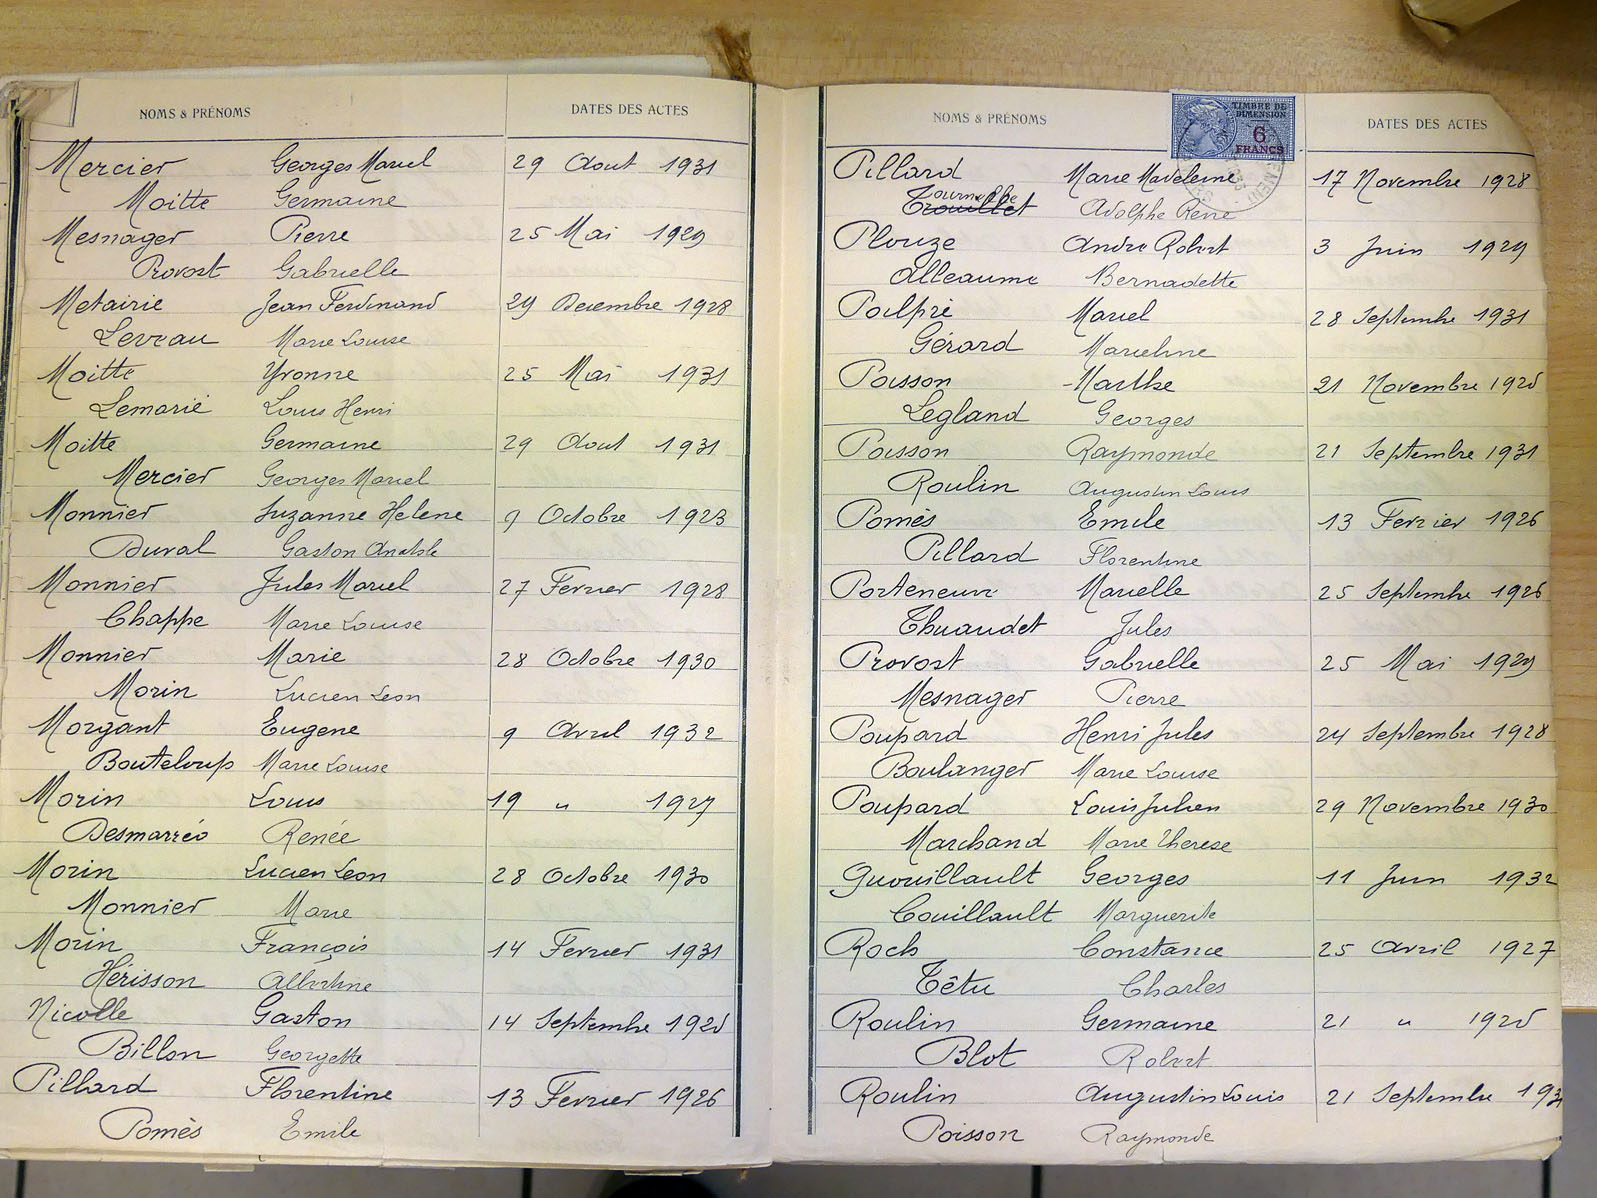 NOMS & PRÉNOMS DATES DES ACTES
Mercier Georges Marcel 29 Aout 1931
Moitte Germaine
Mesnager Pierre 25 Mai 1929
Provost Gabrielle
Metairie Jean Ferdinand 29 Decembre 1928
Levrau Marie Louise
Moitte Yvonne 25 Mai 1931
Lemarié Louis Henri
Moitte Germaine 29 Aout 1931
Mercier Georges Marcel
Monnier Suzanne Helene 9 Octobre 1923
Duval Gaston Anatole
Monnier Jules Marcel 27 Fevrier 1928
Chappe Marie Louise
Monnier Marie 28 Octobre 1930
Morin Lucien Leon
Morgant Eugene 9 Avril 1932
Bouteloup Marie Louise
Morin Louis 19 " 1927
Desmarres Renée
Morin Lucien Leon 28 Octobre 1930
Monnier Marie
Morin François 14 Fevrier 1931
Hérisson Albertine
Nicolle Gaston 14 Septembre 1925
Billon Georgette
Pillard Florentine 13 Fevrier 1926
Pomès Emile
NOMS & PRÉNOMS DATES DES ACTES
TIMBRE DE
DIMENSION
6
FRANCS
Pillard Marie Madeleine 17 Novembre 1928
Trouillet Adolphe René
Plouze André Robert 3 Juin 1929
Alleaume Bernadette
Poilpré Marcel 28 Septembre 1931
Gérard Marceline
Poisson Marthe 21 Novembre 1925
Legland Georges
Poisson Raymonde 21 Septembre 1931
Roulin Augustin Louis
Pomès Emile 13 Fevrier 1926
Pillard Florentine
Porteneuve Marcelle 25 Septembre 1926
Thuaudet Jules
Provost Gabrielle 25 Mai 1929
Mesnager Pierre
Poupard Henri Jules 24 Septembre 1928
Boulanger Marie Louise
Poupard Louis Julien 29 Novembre 1930
Marchand Marie Therese
Quouillault Georges 11 Juin 1932
Couillault Marguerite
Roch Constance 25 Avril 1927
Têtu Charles
Roulin Germaine 21 " 1925
Blot Robert
Roulin Augustin Louis 21 Septembre 193
Poisson Raymonde